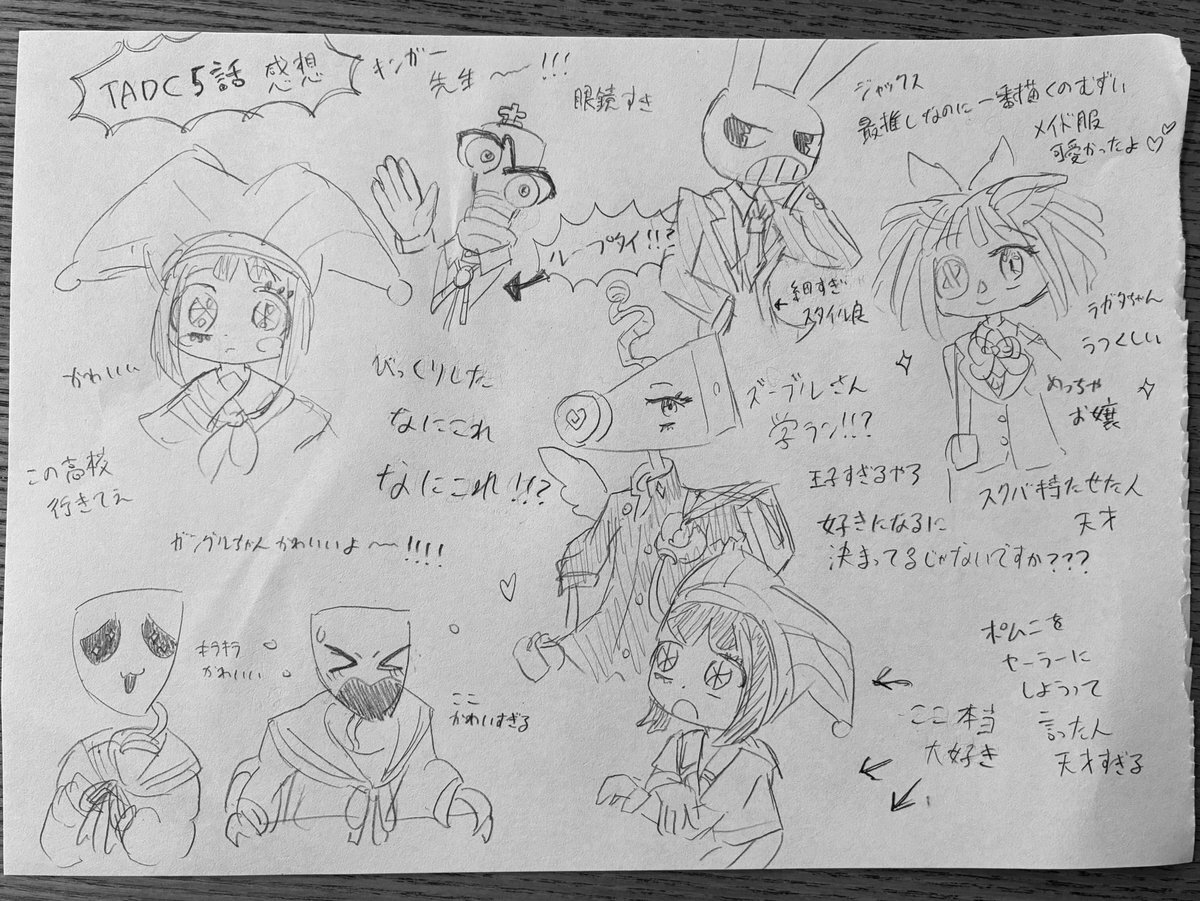 TADC 5話 感想
キンガー
先生〜〜!!!
眼鏡すき
ジャックス
最推しなのに一番描くのむずい
メイド服
可愛かったよ♡♡
ループタイ!!?
← 細すぎ
スタイル良
ラガタちゃん
うつくしい
めっちゃ
お嬢
スクバ持たせた人
天才
かわいい
この高校
行きてえ
びっくりした
なにこれ
なにこれ!!?
ズーブルさん
学ラン!!?
王子すぎるやろ
好きになるに
決まってるじゃないですか???
ガングルちゃんかわいいよ〜〜!!!!
キラキラ
かわいい
ここ
かわいすぎる
ポムニを
セーラーに
しようって
言ったん
天才すぎる
ここ本当
大好き